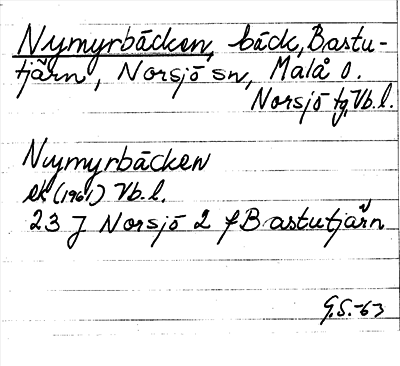 Nymyrbäcken, bäck, Bastu-
tjärn, Norsjö sn, Malå o.
Norsjö tg, Vb.l.
Nymyrbäcken
ek (1961) Vb.l.
23 J Norsjö 2 f Bastutjärn
G.S.-63